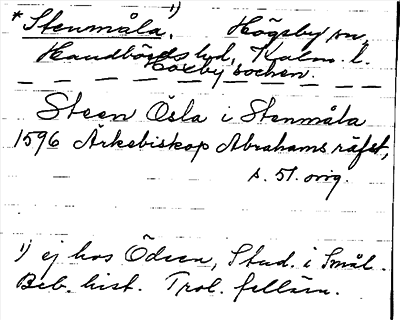 * Stenmåla. 1) Högsby sn,
Handbörds hd, Kalm. l.
Foxby socken.
Steen Ösla i Stenmåla
1596 Ärkebiskop Abrahams räfst,
s. 51. orig.
1) ej hos Ödeen, Stud. i Smål.
Beb. hist. Trol. felläsn.